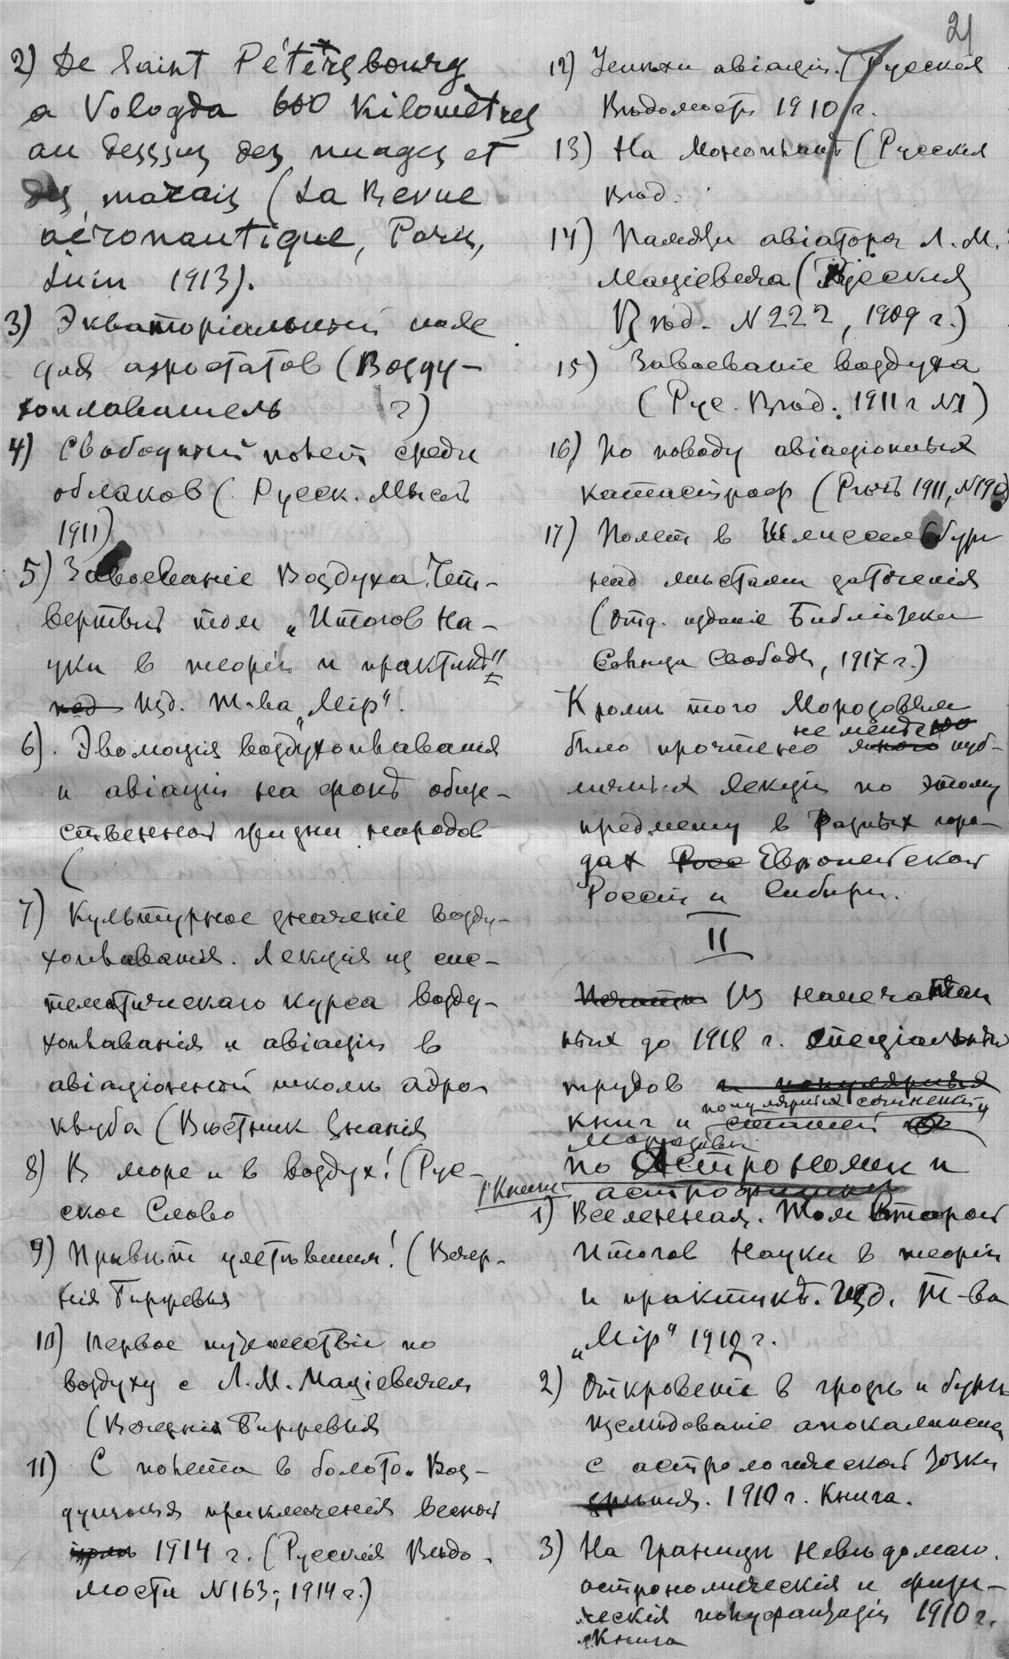 21
2) De Saint Pétersbourg
a Vologda 600 Kilomètres
au dessus des nuages et
des marais (La Revue
aéronautique, Paris,
Juin 1913).
3) Экваторіальный пояс
для аэростатов (Возду-
хоплаватель ?)
4) Свободный полет среди
облаков (Русск. Мысль
1911)
5) Завоеваніе Воздуха. Чет-
вертый том „Итогов На-
уки в теоріи и практикѣ"
под Изд. Т-ва „Мір".
6). Эволюція воздухоплаванія
и авіаціи на фонѣ обще-
ственной жизни народов
(
7) Культурное значеніе возду-
хоплаванія. Лекція из сис-
тематическаго курса возду-
хоплаванія и авіаціи в
авіаціонной школѣ аэро-
клуба (Вѣстник Знанія
8) В море и в воздух! (Рус-
ское Слово
9) Привѣт улетѣвшим! (Вечер-
нія Биржевыя
10) Первое путешествіе по
воздуху с Л.М. Маціевичем
(Вечернія Биржевыя
11) С полета в болото. Воз-
душныя приключенія весной
1914 г. (Русскія Вѣдо-
мости N163; 1914 г.)
12) Успѣхи авіаціи. (Русскія
Вѣдомости 1910 г.
13) На Монопланѣ (Русскія
Вѣд.
14) Памяти авіатора Л.М.
Маціевича (Русския
Вѣд. N222, 1909 г.)
15) Завоеваніе воздуха
(Рус. Вѣд. 1911 г N1)
16) По поводу авіаціонных
катастроф (Рѣчь 1911, N190)
17) Полет в Шлиссельбург
над мѣстами заточенія
(Отд. изданіе Библіотеки
Солнца Свободы, 1917 г.)
Кромѣ того Морозовым
не мало
было прочтено много пуб-
личных лекцій по этому
предмету в разных горо-
дах Росс Европейской
Россіи и Сибири.
II
Из напечатан
ных до 1918 г. спеціальных
трудов и популярных
популярных сочиненій
книг и статей
Морозова
по Астрономіи и
астрофизикѣ
1. Книги
1) Вселенная. Том Второй
Итогов Науки в теоріи
и практикѣ. Изд. Т-ва
„Мір" 1912 г.
2) Откровеніе в грозѣ и бурѣ
Изслѣдованіе апокалипсиса
с астрологической точки
зрѣнія. 1910 г. Книга.
3) На Границѣ Невѣдомаго.
астрономическія и физи-
ческія полуфантазіи 1910 г.
Книга